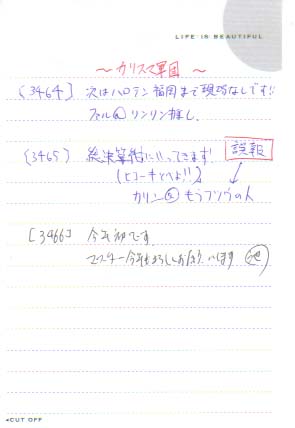 LIFE IS BEAUTIFUL
～カリスマ軍団～
[3464] 次はハロテン福岡まで現場なしです!!
リンリン推し.
(3465) 総決算祭にいってきます! 誤報
(ヒコーキとべよ!!)
カリン もうフツウの人
[3466] 今年初です
マスター今年もよろしくお願いします
◂CUT OFF